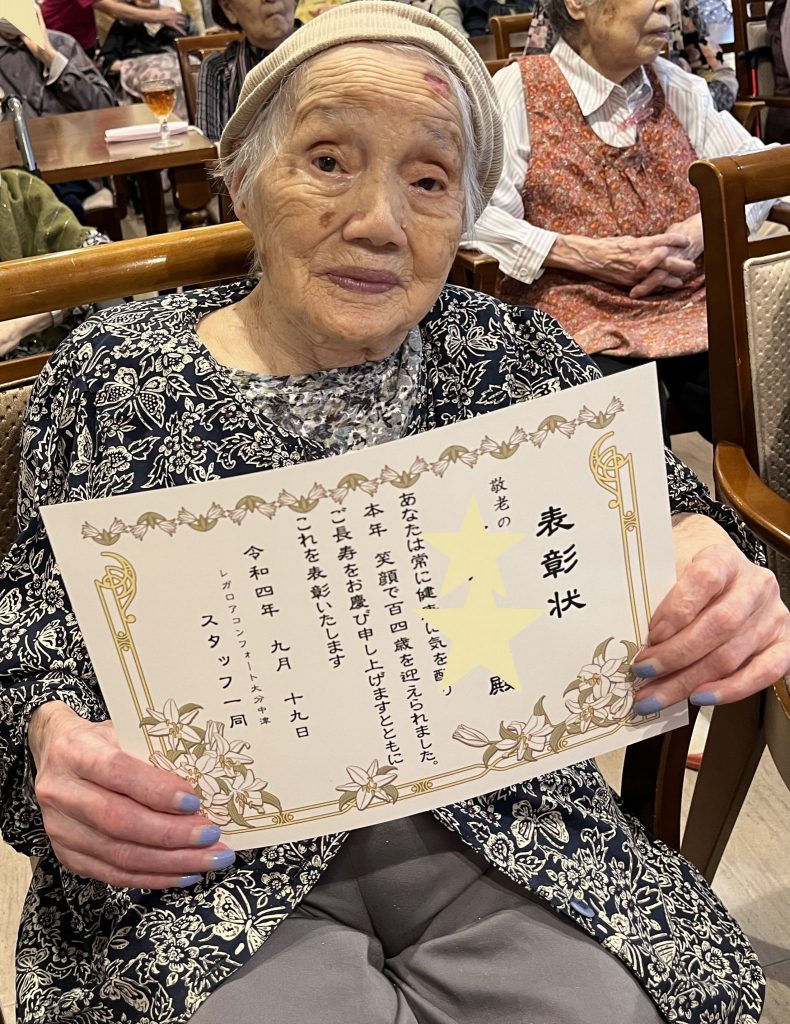 表彰状
敬老の
殿
あなたは常に健康に気を配り
本年 笑顔で百四歳を迎えられました。
ご長寿をお慶び申し上げますとともに
これを表彰いたします
令和四年 九月 十九日
レガロアコンフォート大分中津
スタッフ一同